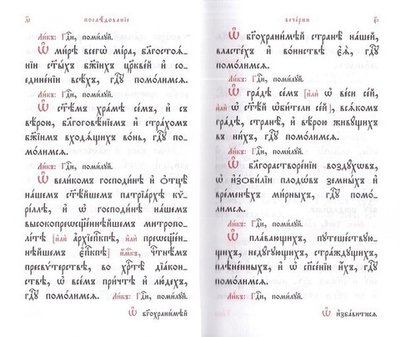 послѣдованіе
Ли́къ: Гдⷭ҇и, поми́лꙋй.
Ѡ҆ ми́рѣ всегѡ̀ мі́ра, благостоѧ́-
нїи ст҃ы́хъ бж҃їихъ цр҃кве́й и҆ со-
едине́нїи всѣ́хъ, гдⷭ҇ꙋ помо́лимсѧ.
Ли́къ: Гдⷭ҇и, поми́лꙋй.
Ѡ҆ ст҃ѣ́мъ хра́мѣ се́мъ, и҆ съ вѣ́-
рою, благоговѣ́нїемъ и҆ стра́хомъ
бж҃їимъ входѧ́щихъ во́нь, гдⷭ҇ꙋ по-
мо́лимсѧ.
Ли́къ: Гдⷭ҇и, поми́лꙋй.
Ѡ҆ вели́комъ господи́нѣ и҆ ѻ҆тцѣ̀
на́шемъ ст҃ѣ́йшемъ патрїа́рхѣ кѷ-
рі́ллѣ, и҆ ѡ҆ господи́нѣ на́шемъ
высокопреѡсщ҃е́ннѣйшемъ митропо-
лі́тѣ [и҆лѝ а҆рхїеп҃кпѣ, и҆лѝ преѡсщ҃е́н-
нѣйшемъ є҆п҃кпѣ] и҆м҃къ, чⷭ҇тнѣ́мъ
пресвѵ́терствѣ, во хрⷭ҇тѣ̀ дїа́кон-
ствѣ, ѡ҆ все́мъ при́чтѣ и҆ лю́дехъ,
гдⷭ҇ꙋ помо́лимсѧ.
Ли́къ: Гдⷭ҇и, поми́лꙋй.
Ѡ҆ бг҃охрани́мѣй
вече́рни
Ѡ҆ бг҃охрани́мѣй странѣ̀ на́шей,
власте́хъ и҆ во́инствѣ є҆ѧ̀, гдⷭ҇ꙋ
помо́лимсѧ.
Ли́къ: Гдⷭ҇и, поми́лꙋй.
Ѡ҆ гра́дѣ се́мъ [и҆лѝ ѡ҆ ве́си се́й,
и҆лѝ ѡ҆ ст҃ѣ́й ѻ҆би́тели се́й], всѧ́комъ
гра́дѣ, странѣ̀, и҆ вѣ́рою живꙋ́щихъ
въ ни́хъ, гдⷭ҇ꙋ помо́лимсѧ.
Ли́къ: Гдⷭ҇и, поми́лꙋй.
Ѡ҆ благорастворе́нїи воздꙋ́хѡвъ,
ѡ҆ и҆з̾ѻби́лїи плодѡ́въ земны́хъ и҆
вре́менѣхъ ми́рныхъ, гдⷭ҇ꙋ помо́лим-
сѧ.
Ли́къ: Гдⷭ҇и, поми́лꙋй.
Ѡ҆ пла́вающихъ, пꙋтеше́ствꙋю-
щихъ, недꙋ́гꙋющихъ, стра́ждꙋщихъ,
плѣне́нныхъ, и҆ ѡ҆ сп҃се́нїи и҆́хъ,
гдⷭ҇ꙋ помо́лимсѧ.
Ли́къ: Гдⷭ҇и, поми́лꙋй.
Ѡ҆ и҆зба́витисѧ